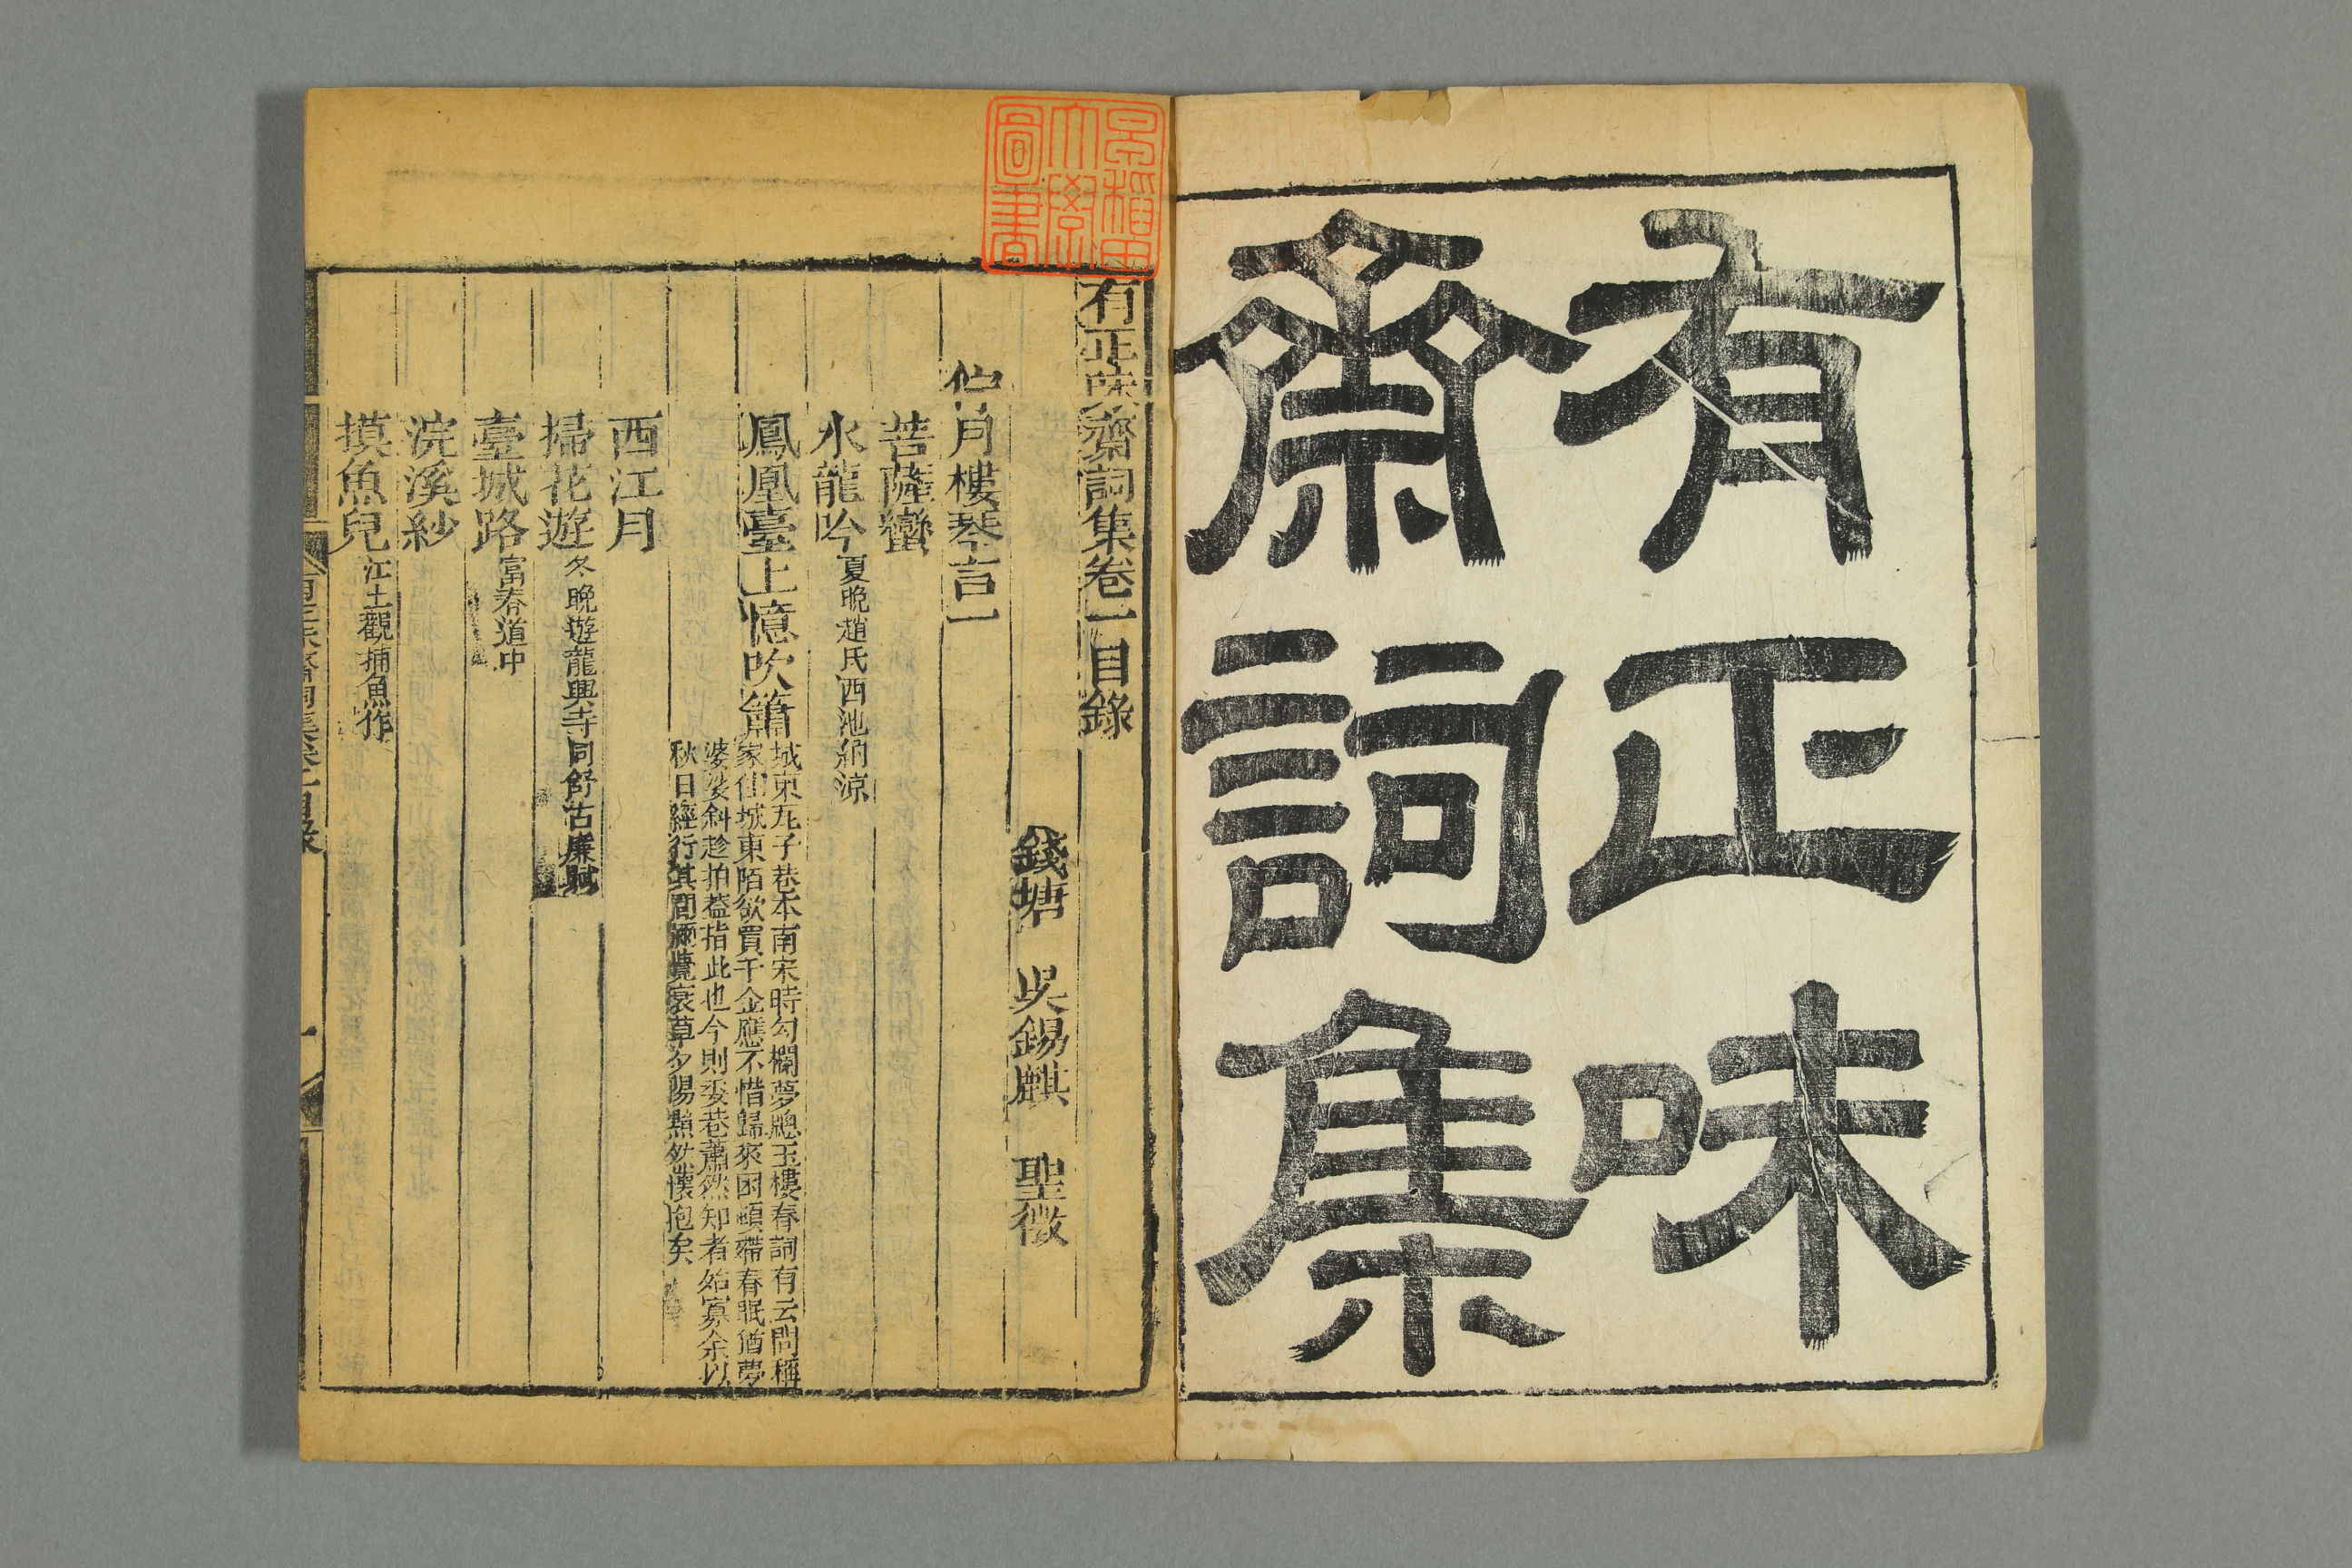 有正味
齋詞集
早稻田
大學
圖書
有正味齋詞集卷一目錄
錢塘 吳錫麒 聖徵
伫月樓琴言一
菩薩蠻
水龍吟 夏晚趙氏西池納涼
鳳凰臺上憶吹簫 城東瓦子巷本南宋時勾欄夢牕玉樓春詞有云問稱
家住城東陌欲買千金應不惜歸來困頓殢春眠猶夢
婆娑斜趁拍蓋指此也今則委巷蕭然知者始寡余以
秋日經行其間彌覺衰草夕陽黯然懷抱矣
西江月
掃花遊 冬晚遊龍興寺同舒古廉賦
臺城路 富春道中
浣溪紗
摸魚兒 江上觀捕魚作
有正味齋詞集卷一目錄 一